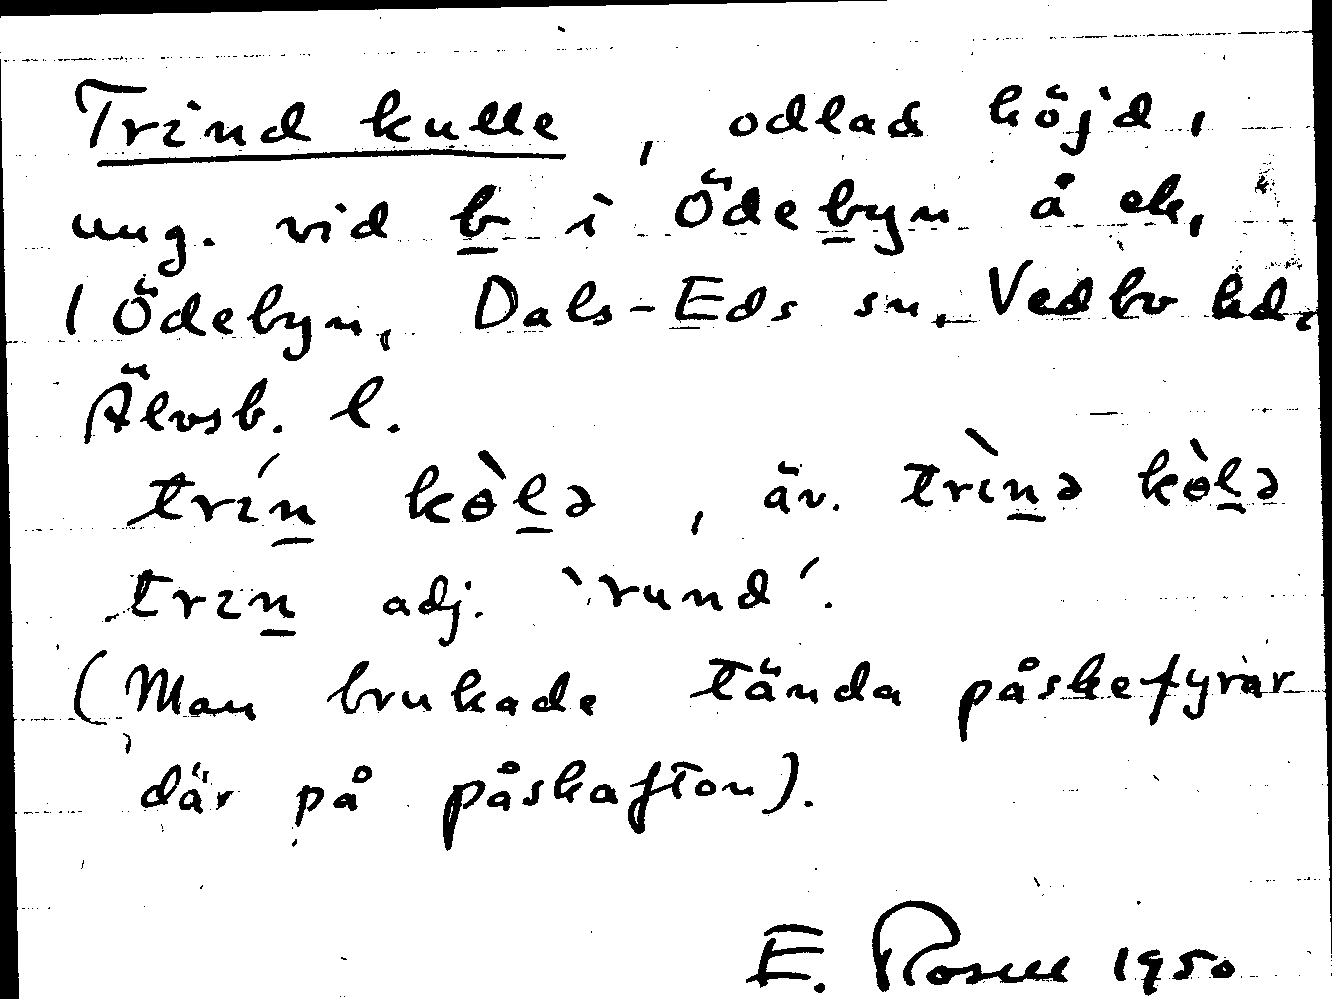 Trind kulle, odlad höjd,
ung. vid b i Ödebyn å ek,
1 Ödebyn, Dals-Eds sn. Vedbo hd.
Älvsb. l.
trín kɵ̀lə, äv. trìnə kɵ̀lə
trın adj. 'rund'.
(Man brukade tända påskefyrar
där på påskafton).
E. Rosell 1950